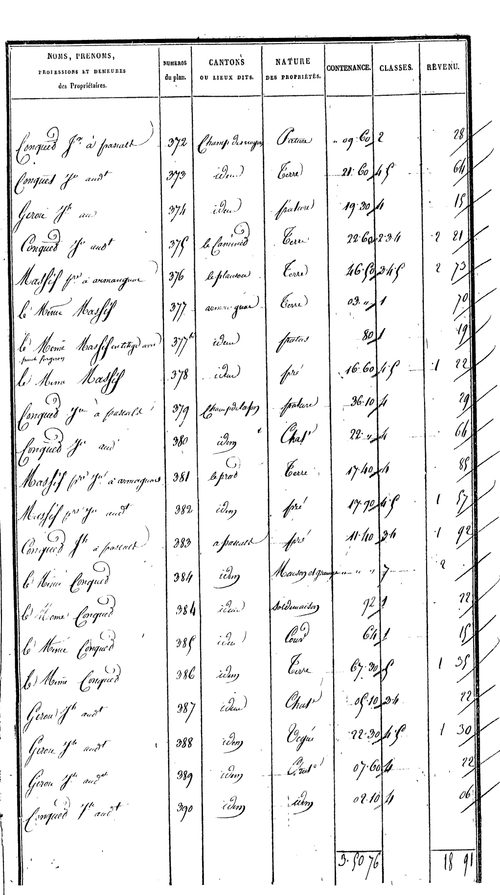 NOMS, PRENOMS, PROFESSIONS ET DEMEURES des Propriétaires. NUMÉROS du plan. CANTONS OU LIEUX DITS. NATURE DES PROPRIÉTÉS. CONTENANCE. CLASSES. REVENU.
Conqued Jn à pascalet 372 Pature 09·60 2 28
Conqued Jn audt 373 idem Terre 21·60 4 5 64
Gerou Jh au 374 idem pature 19·30 4 15
Conqued Jn audt 375 Terre 22·60 2·3·4 2 21
Massif pre à armangnac 376 Terre 46·50 3·4·5 2 73
le Même Massif 377 Terre 03·„ 1 70
le Même Massif 377 idem 80 1 19
le Même Massif 378 idem pré 16·60 4·5 1 22
Conqued Jn à pascalet 379 pature 36·10 4 29
Conqued Jn au 380 idem Chat 22·„ 4 66
Massif pre Jn à armagnac 381 le prat Terre 17·40 4 85
Massif pre Jn audt 382 idem pré 17·70 4·5 1 57
Conqued Jh à pascalet 383 a pascalet pré 11·40 3·4 1 92
le Même Conqued 384 idem Maison et grange 7 2
le Même Conqued 384 idem Sol de maison 92 1 22
le Même Conqued 385 idem Cour 64 1 15
le Même Conqued 386 idem Terre 67·30 5 1 35
Gerou Jh audt 387 idem Chat 05·10 3·4 22
Gerou Jh audt 388 idem 22·30 4·5 1 30
Gerou Jh audt 389 idem Chat 07·60 4 22
Conqued Jh audt 390 idem idem 02·10 4 06
3·50 76 18 91